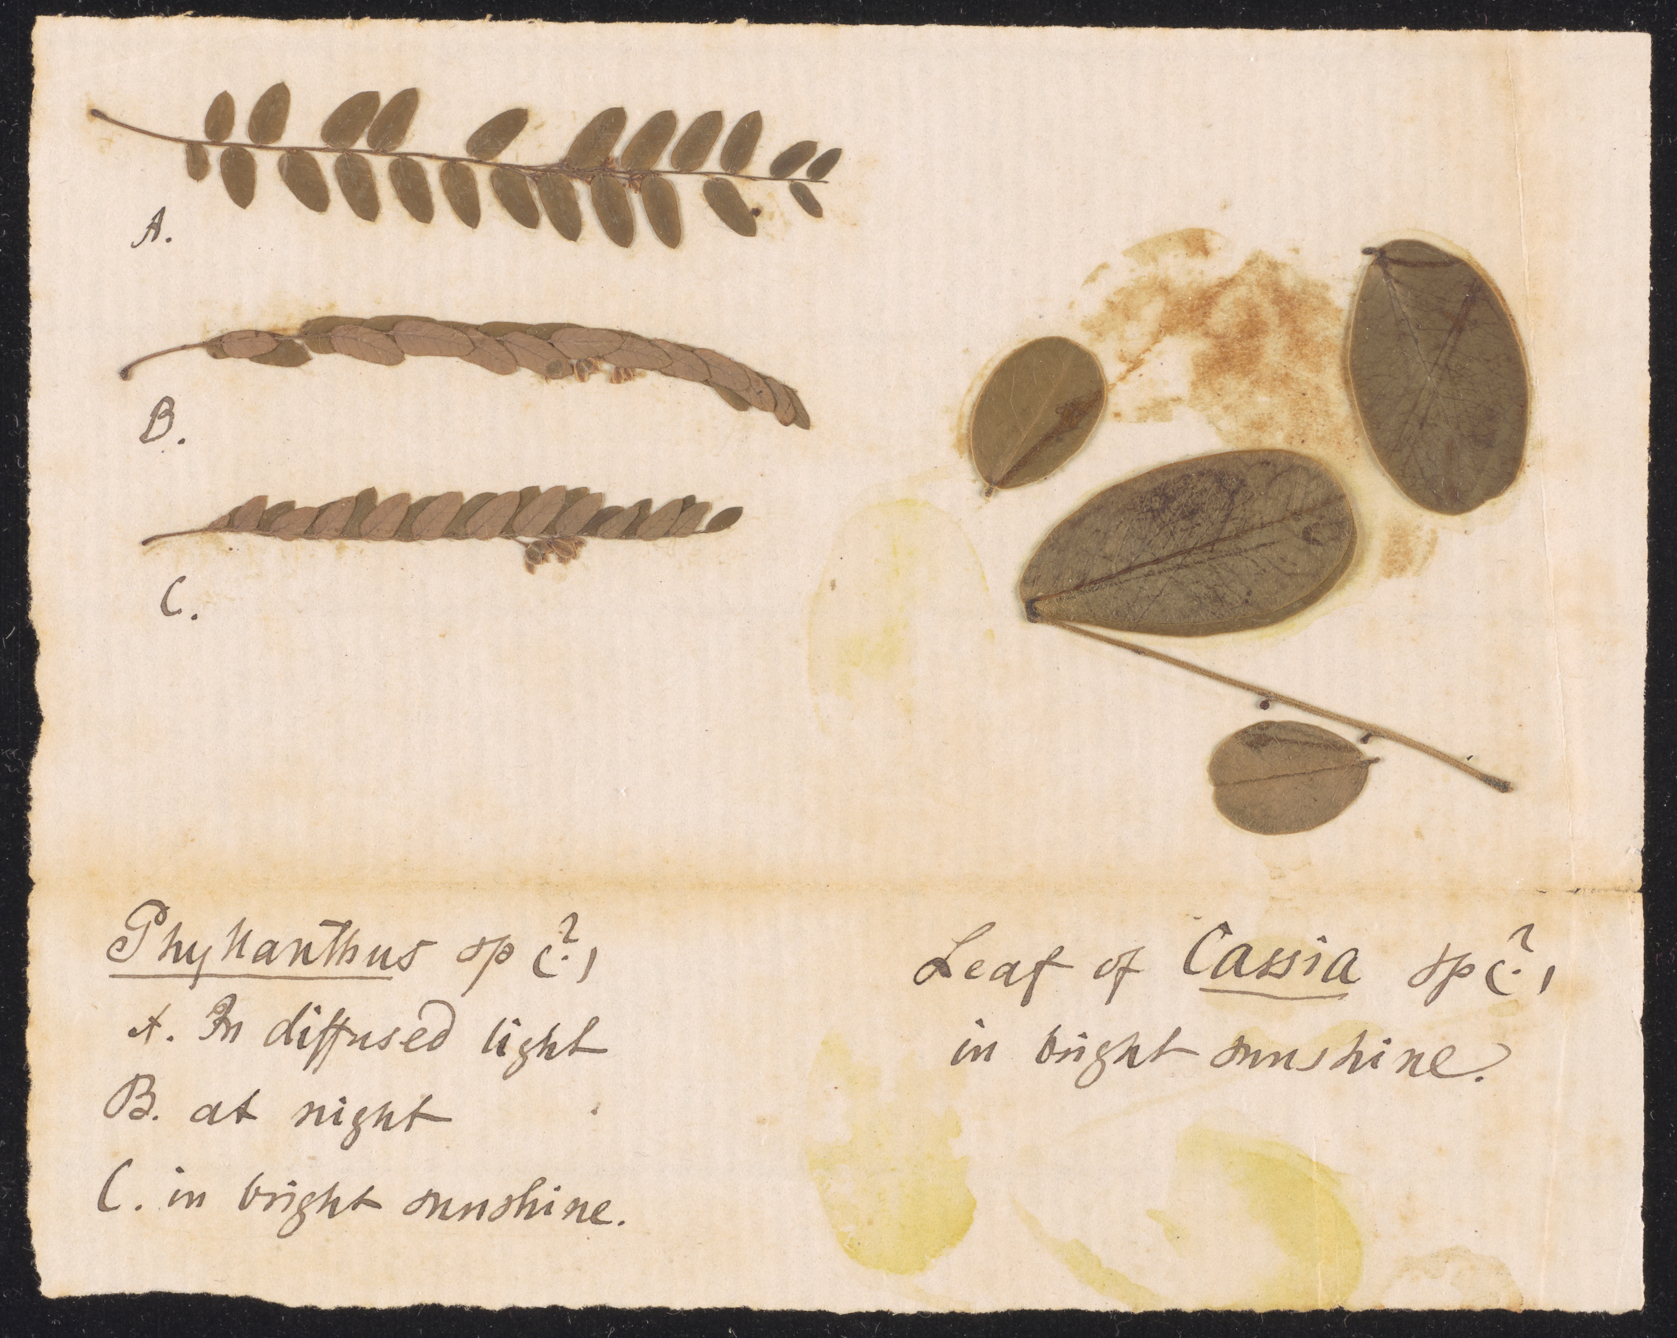 A.
B.
C.
Phyllanthus sp (?)
A. In diffused light
B. at night
C. in bright sunshine.
Leaf of Cassia sp (?)
in bright sunshine.